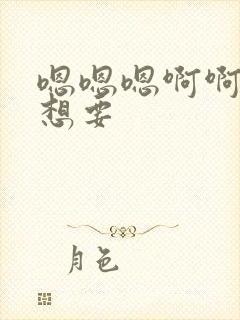 嗯嗯嗯啊啊
想要
月色